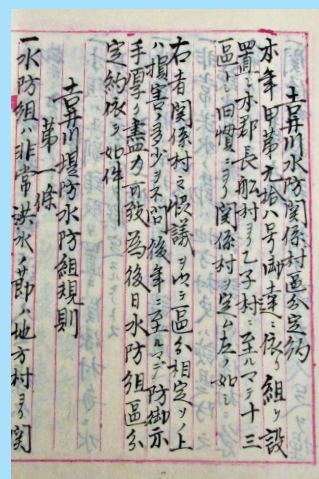 吉井川水防関係村区分定約
本年甲第九拾八号御達ニ依リ組ヲ設
置シ本郡長船村ヨリ乙子村ニ至ルマテ十三
区トシ旧慣ニヨリ関係村ヲ定ム左ノ如シ
右者関係村之協議ヲ以テ区分相定ソノ上
ハ損害ノ多少ヲ不問後年ニ至ルマテ防禦示
手厚ク尽力可致為後日水防組区分
定約依テ如件
吉井川堤防水防組規則
第一條
一水防組ハ非常洪水ノ節ハ地方村ヨリ関